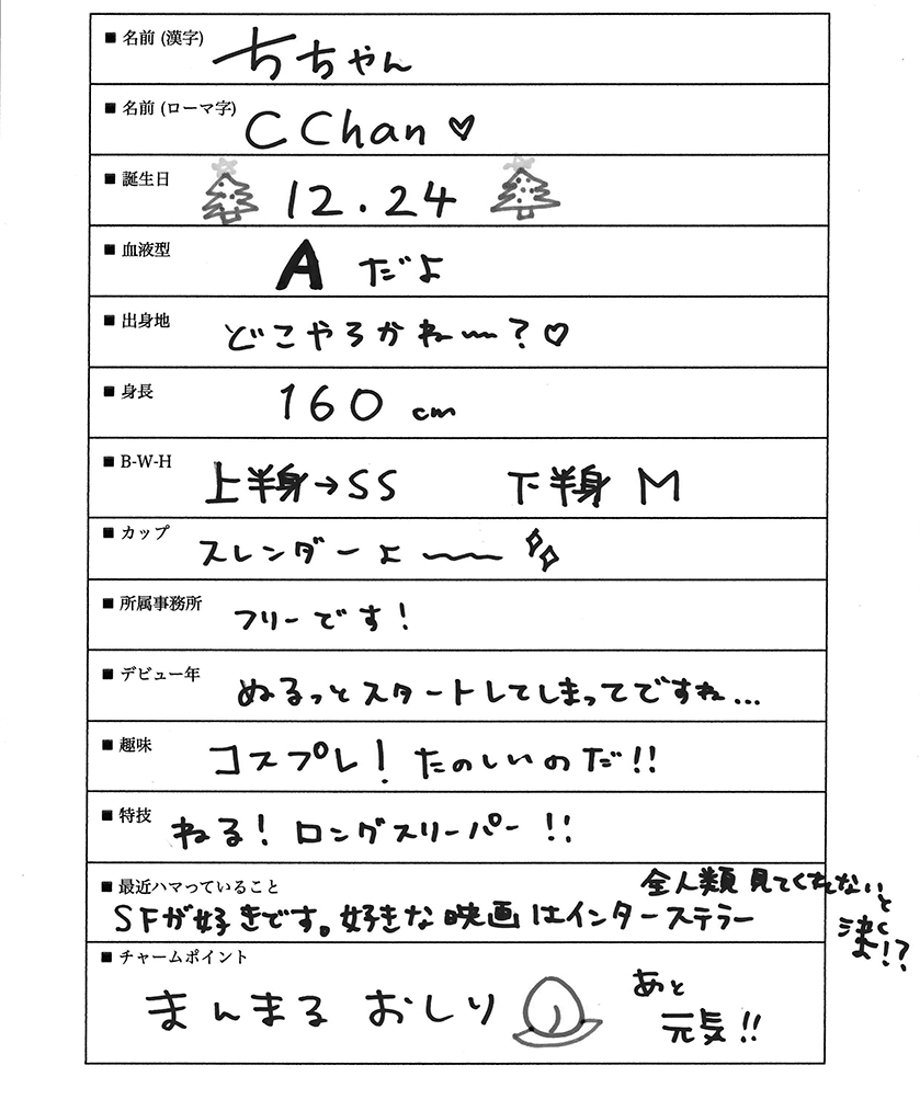 ■ 名前 (漢字) ちちゃん
■ 名前 (ローマ字) C Chan ♡
■ 誕生日 12.24
■ 血液型 A だよ
■ 出身地 どこやろかね〜?♡
■ 身長 160 cm
■ B-W-H 上半身→SS 下半身 M
■ カップ スレンダーよ〜〜
■ 所属事務所 フリーです!
■ デビュー年 ぬるっとスタートしてしまってですね...
■ 趣味 コスプレ! たのしいのだ!!
■ 特技 ねる! ロングスリーパー!!
■ 最近ハマっていること
SFが好きです。好きな映画はインターステラー
全人類 見てくれないと
泣くよ!?
■ チャームポイント
まんまる おしり
あと
元気!!